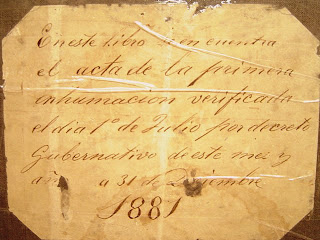 En este libro se encuentra
el acta de la primera
inhumacion verificada
el dia 1º de Julio por decreto
Gubernativo de este mes y
a 31 de Diciembre
1881